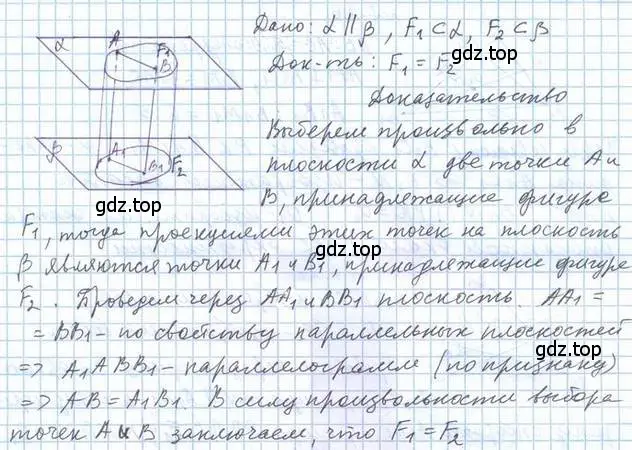 Дано: α || β, F₁ ⊂ α, F₂ ⊂ β
Док-ть: F₁ = F₂
Доказательство
Выберем произвольно в
плоскости α две точки A и
B, принадлежащие фигуре
F₁, тогда проекциями этих точек на плоскость
β являются точки A₁ и B₁, принадлежащие фигуре
F₂. Проведем через AA₁ и BB₁ плоскость. AA₁ =
= BB₁ - по свойству параллельных плоскостей
=> A₁ABB₁ - параллелограмм (по признаку)
=> AB = A₁B₁. В силу произвольности выбора
точек A и B заключаем, что F₁ = F₂
α
A
F₁
B
β
A₁
B₁
F₂
gdz.top
gdz.top
gdz.top
gdz.top
gdz.top
gdz.top
gdz.top
gdz.top